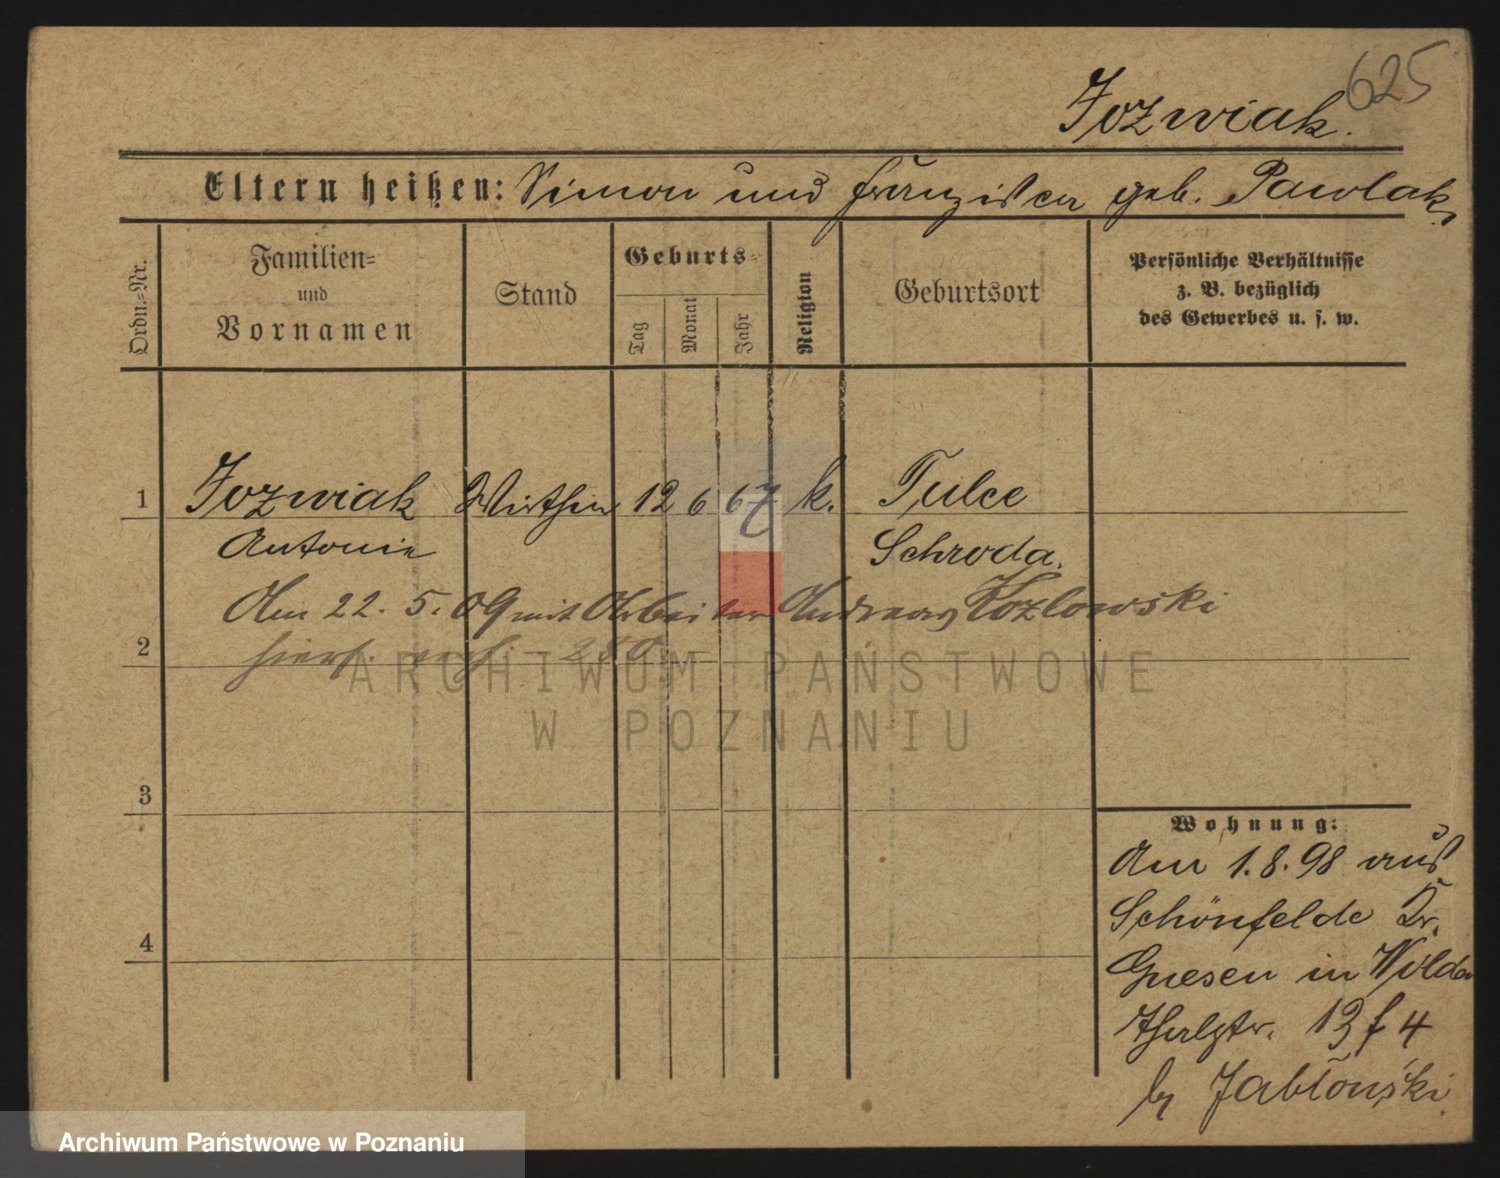 625
Jozwiak.
Eltern heißen: Simon und Franziska geb. Pawlak.
Ordn.-Nr.
Familien- und Vornamen
Stand
Geburts-
Tag
Monat
Jahr
Religion
Geburtsort
Persönliche Verhältnisse
z. B. bezüglich
des Gewerbes u. s. w.
1 Jozwiak Wirthin 12 6 67 k. Tulce
Antonie Schroda.
Am 22. 5. 09 mit Arbeiter Andreas Kozlowski
2
hiers. 280
3
4
Wohnung:
Am 1.8.98 aus
Schönfelde Kr.
Gnesen in Wilda
Thalstr. 13 f 4
by Jabłoński
ARCHIWUM PAŃSTWOWE
W POZNANIU
Archiwum Państwowe w Poznaniu